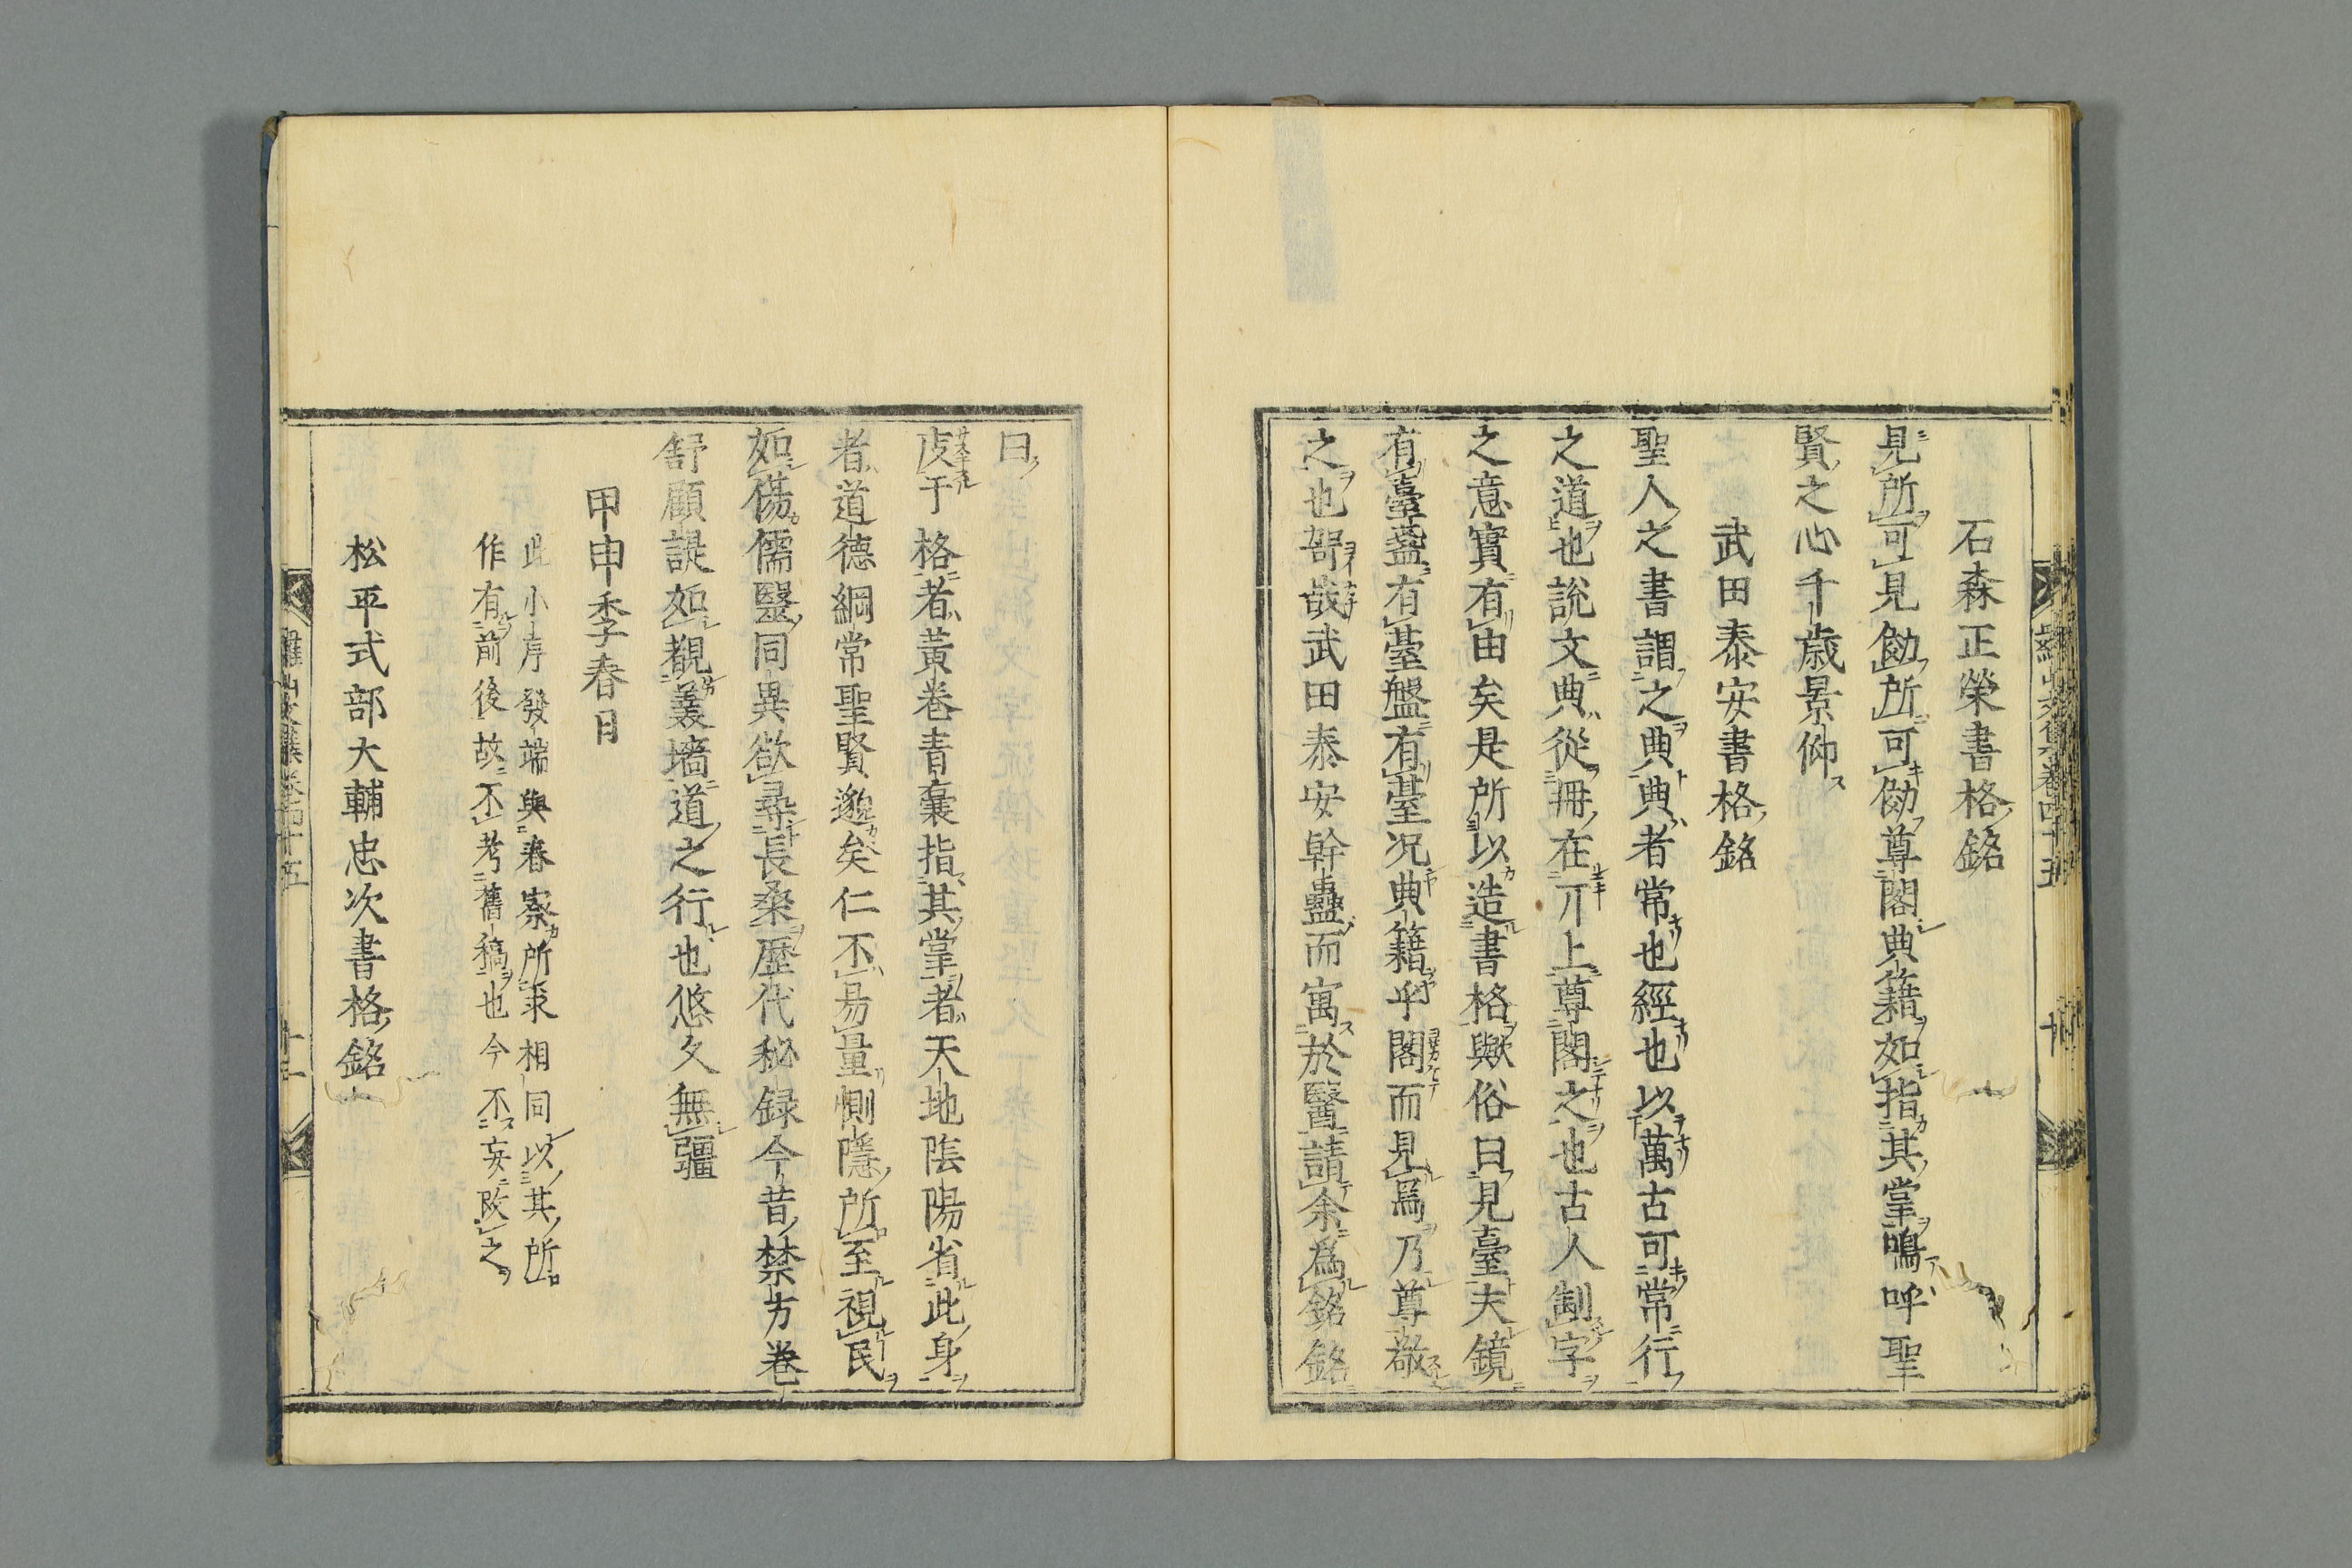 石森正榮書格銘
見所可見劬所可劬尊閣典籍如指其掌嗚呼聖
賢之心千歳景仰
武田泰安書格銘
聖人之書謂之典典者常也經也以萬古可常行
之道也說文典從冊在丌上尊閣之也古人制字
之意實有由矣是所以造書格歟俗曰見臺夫鏡
有臺盞有臺盤有臺况典籍乎閣而見焉乃尊敬
之也哿哉武田泰安幹蠱而寓於醫請余爲銘銘
曰
庋于格者黃卷青囊指其掌者天地陰陽省此身
者道德綱常聖賢邈矣仁不易量惻隱所至視民
如傷儒醫同異欲尋長桑歷代秘録今昔禁方卷
舒顧諟如觀羹墻道之行也悠久無彊
甲申季春日
此小序發端與春察所求相同以其所
作有前後故不考舊稿也今不妄改之
松平式部大輔忠次書格銘
羅山文集卷四十五
十一